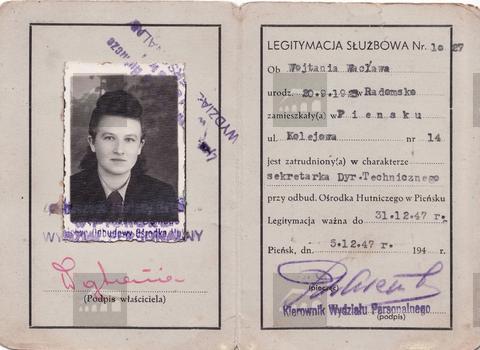 WYDZIAŁ
Odbudowy Ośrodka
(Podpis właściciela)
LEGITYMACJA SŁUŻBOWA Nr.
Ob Wojtania Wacława
urodz. 20.9. w Radomsko
zamieszkały(a) w Pieńsku
ul. Kolejowa nr 14
jest zatrudniony(a) w charakterze
sekretarka Dyr.Technicznego
przy odbud. Ośrodka Hutniczego w Pieńsku
Legitymacja ważna do 31.12.47 r.
Pieńsk, dn. 5.12.47 r. 194 r.
(pieczęć)
Kierownik Wydziału Personalnego
(podpis)